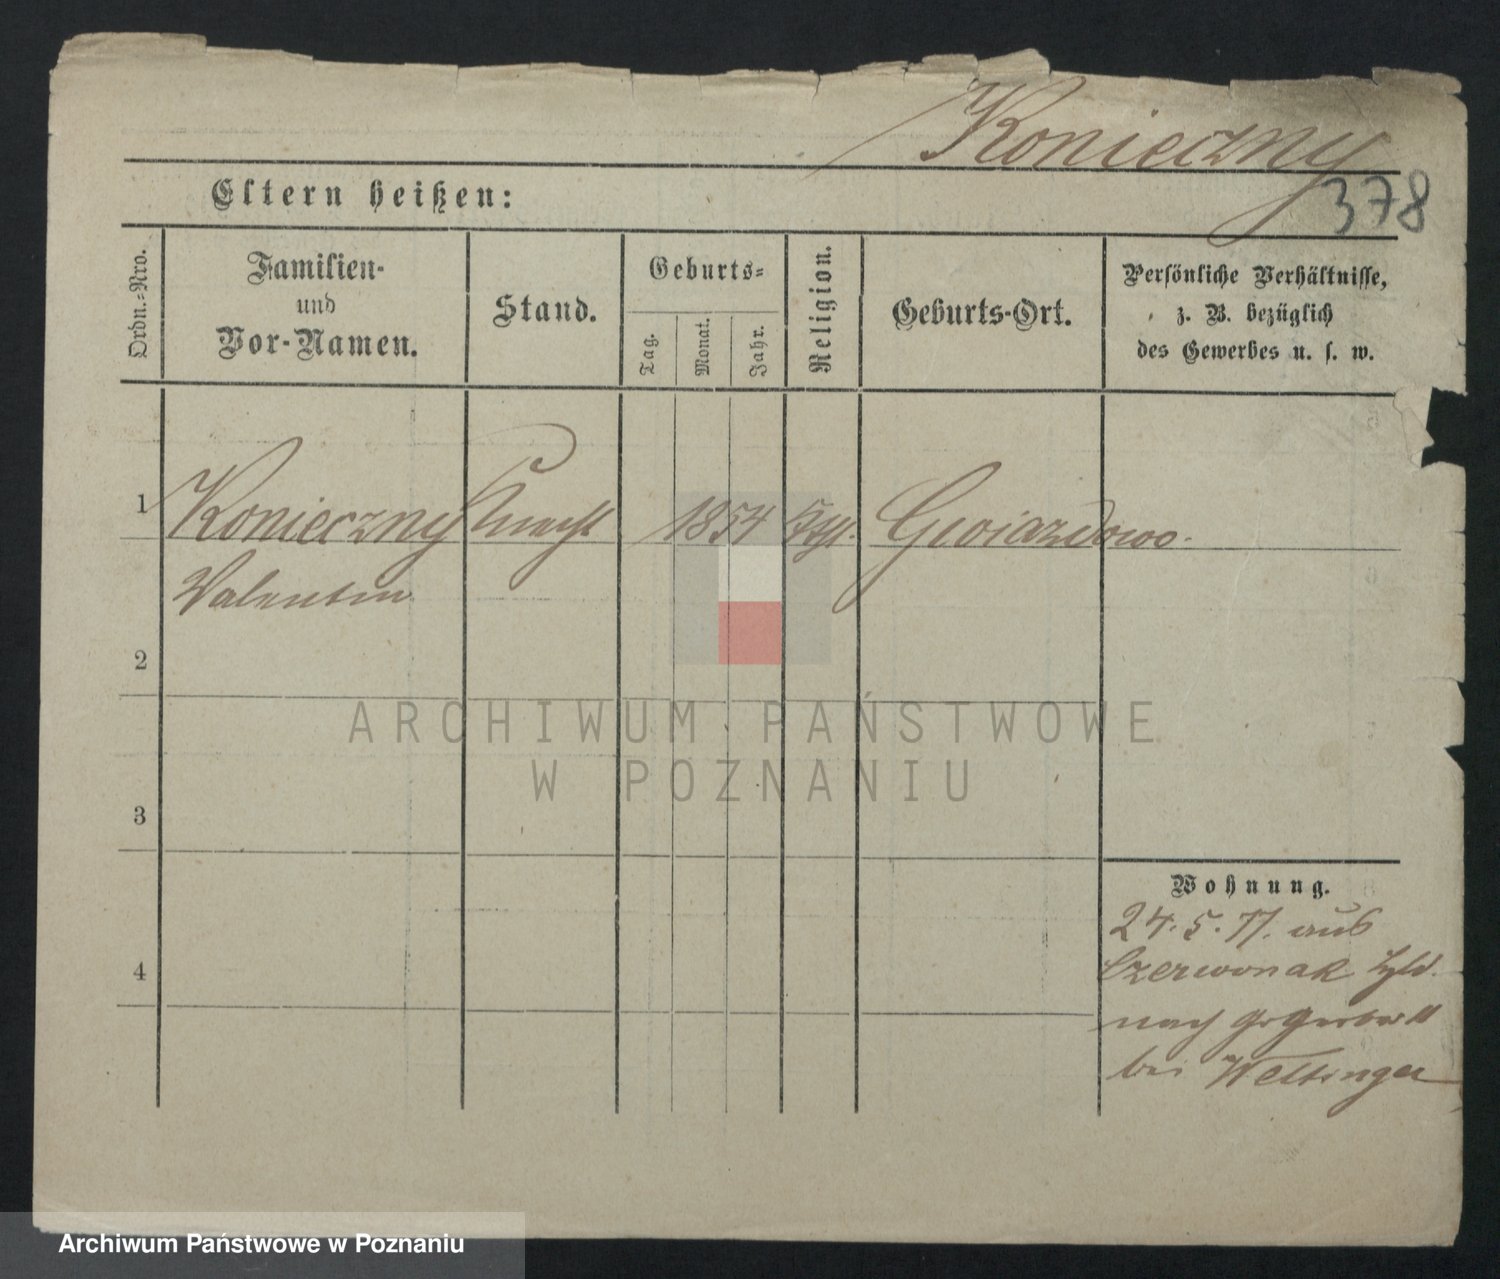 Konieczny
378
Eltern heißen:
Ordn.=Nro.
Familien-
und
Vor-Namen.
Stand.
Geburts=
Tag.
Monat.
Jahr.
Religion.
Geburts-Ort.
Persönliche Verhältnisse,
z. B. bezüglich
des Gewerbes u. s. w.
1 Konieczny Knecht 1854 Kth. Gwiazdowo.
Valentin
2
3
4
Wohnung.
24.5.77. aus
Czerwonak
nach
bei Weltinger
ARCHIWUM PAŃSTWOWE
W POZNANIU
Archiwum Państwowe w Poznaniu